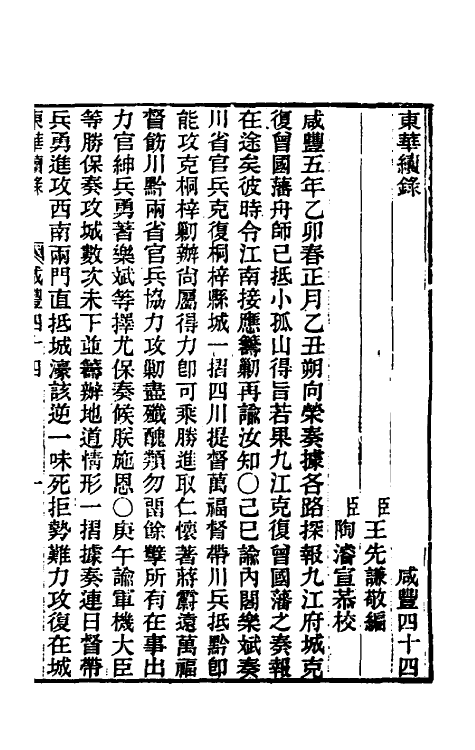 東華續錄　咸豐四十四
臣王先謙敬編
臣陶濬宣恭校
咸豐五年乙卯春正月乙丑朔向榮奏據各路探報九江府城克
復曾國藩舟師已抵小孤山得旨若果九江克復曾國藩之奏報
在途矣彼時令江南接應籌勦再諭汝知〇己巳諭內閣樂斌奏
川省官兵克復桐梓縣城一摺四川提督萬福督帶川兵抵黔卽
能攻克桐梓勦辦尚屬得力卽可乘勝進取仁懷著蔣霨遠萬福
督飭川黔兩省官兵協力攻勦盡殲醜類勿留餘孽所有在事出
力官紳兵勇著樂斌等擇尤保奏候朕施恩〇庚午諭軍機大臣
等勝保奏攻城數次未下並籌辦地道情形一摺據奏連日督帶
兵勇進攻西南兩門直抵城濠該逆一味死拒勢難力攻復在城
東華續錄　咸豐四十四　一